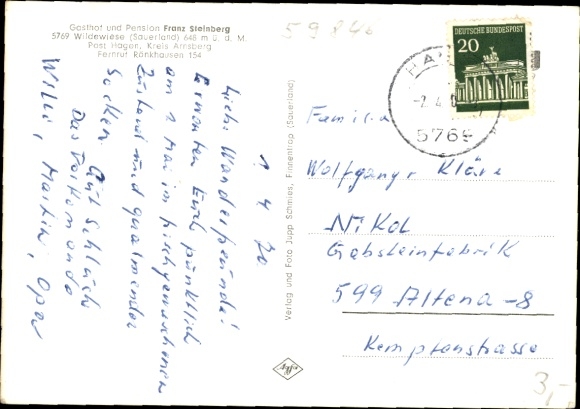 59846
Gasthof und Pension Franz Steinberg
5769 Wildewiese (Sauerland) 646 m ü. d. M.
Post Hagen, Kreis Arnsberg
Fernruf Rönkhausen 154
1 4 70
Lieb. Wanderfreunde!
Erwarten Euch pünktlich
am 1 Mai in frischgewaschenen
Zustand und qualmender
Socken Gut Schluck
Das Vorkomando
Willi, Martin, Opa
Verlag und Foto Jupp Schmies, Finnentrop (Sauerland)
DEUTSCHE BUNDESPOST
20
HA
-2.4.
5769
Familie
Wolfgang Kläre
Nikol
Gabsteinfabrik
599 Altena-8
Kemptenstrasse
3,-